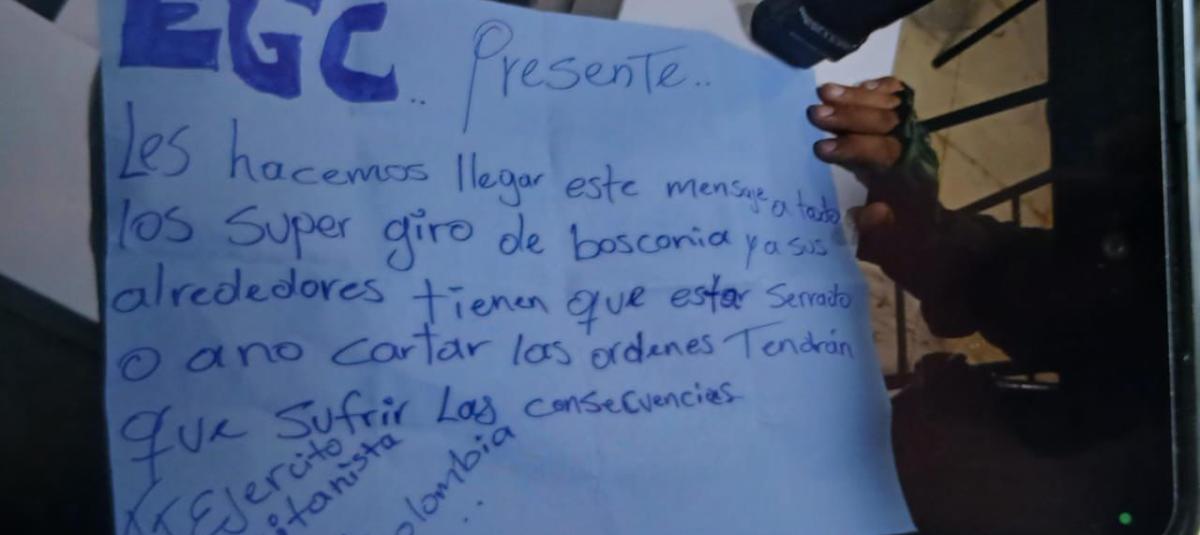 EGC.. Presente..
Les hacemos llegar este mensaje a todo
los super giro de bosconia y a sus
alrededores tienen que estar Serrado
o a no cartar las ordenes Tendrán
que sufrir Las consecuencias
Ejercito
itanista
olombia
..